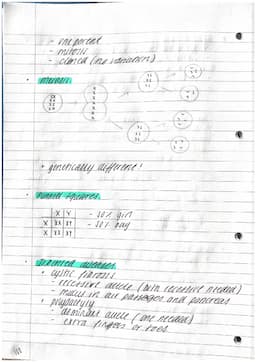 - one parent
- mitosis
- cloned (no variation)
• meiosis
• genetically different!
• Punnet squares
X Y
X XX XY
X XX XY
- 50% girl
- 50% boy
• Inherited diseases
• cystic fibrosis
- recessive allele (both recessive needed)
- mucus in air passages and pancreas
• polydactyly
- dominant allele (one needed)
- extra fingers or toes